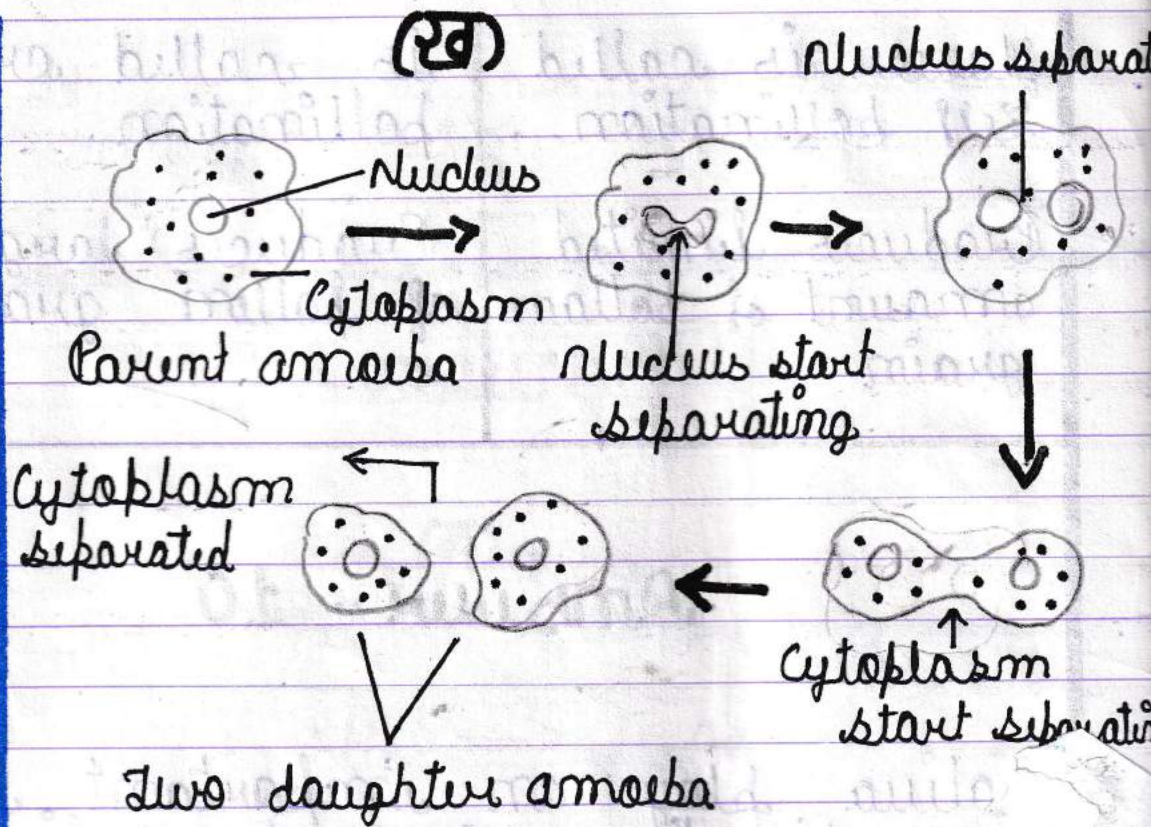 (ख)
Nucleus separat
Nucleus
Cytoplasm
Parent amoeba
Nucleus start
separating
Cytoplasm
separated
Cytoplasm
start separatin
Two daughter amoeba